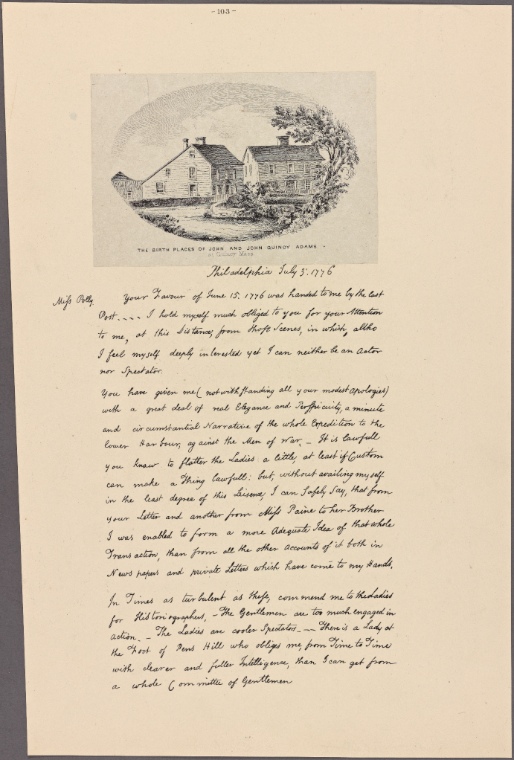 - 103 -
THE BIRTH PLACES OF JOHN AND JOHN QUINCY ADAMS -
Philadelphia July 5. 1776
Miſs Polly.
Your Favour of June 15. 1776 was handed to me by the last
Post. ___ I hold myself much obliged to you for your Attention
to me, at this Distance, from thoſe Scenes, in which, altho
I feel myself deeply interested yet I can neither be an Actor
nor Spectator.
You have given me (notwithſtanding all your modest Apologies)
with a great deal of real Elegance and Perſpicuity, a minute
and circumstantial Narrative of the whole Expedition to the
lower Harbour, against the Men of War. _ It is lawfull
you know to flatter the Ladies a little, at least if Custom
can make a Thing lawfull: but, without availing myself
in the least degree of this License, I can Safely Say, that from
your Letter and another from Miſs Paine to her Brother
I was enabled to form a more Adequate Idea of that whole
Transaction, than from all the other accounts of it both in
News papers and private Letters which have come to my Hands.
In Times as turbulent as theſe, commend me to the Ladies
for Historiographers, _ The Gentlemen are too much engaged in
action. _ The Ladies are cooler Spectators. __ There is a Lady at
the Foot of Pens Hill who obliges me, from Time to Time
with clearer and fuller Intelligence, than I can get from
a whole Committee of Gentlemen